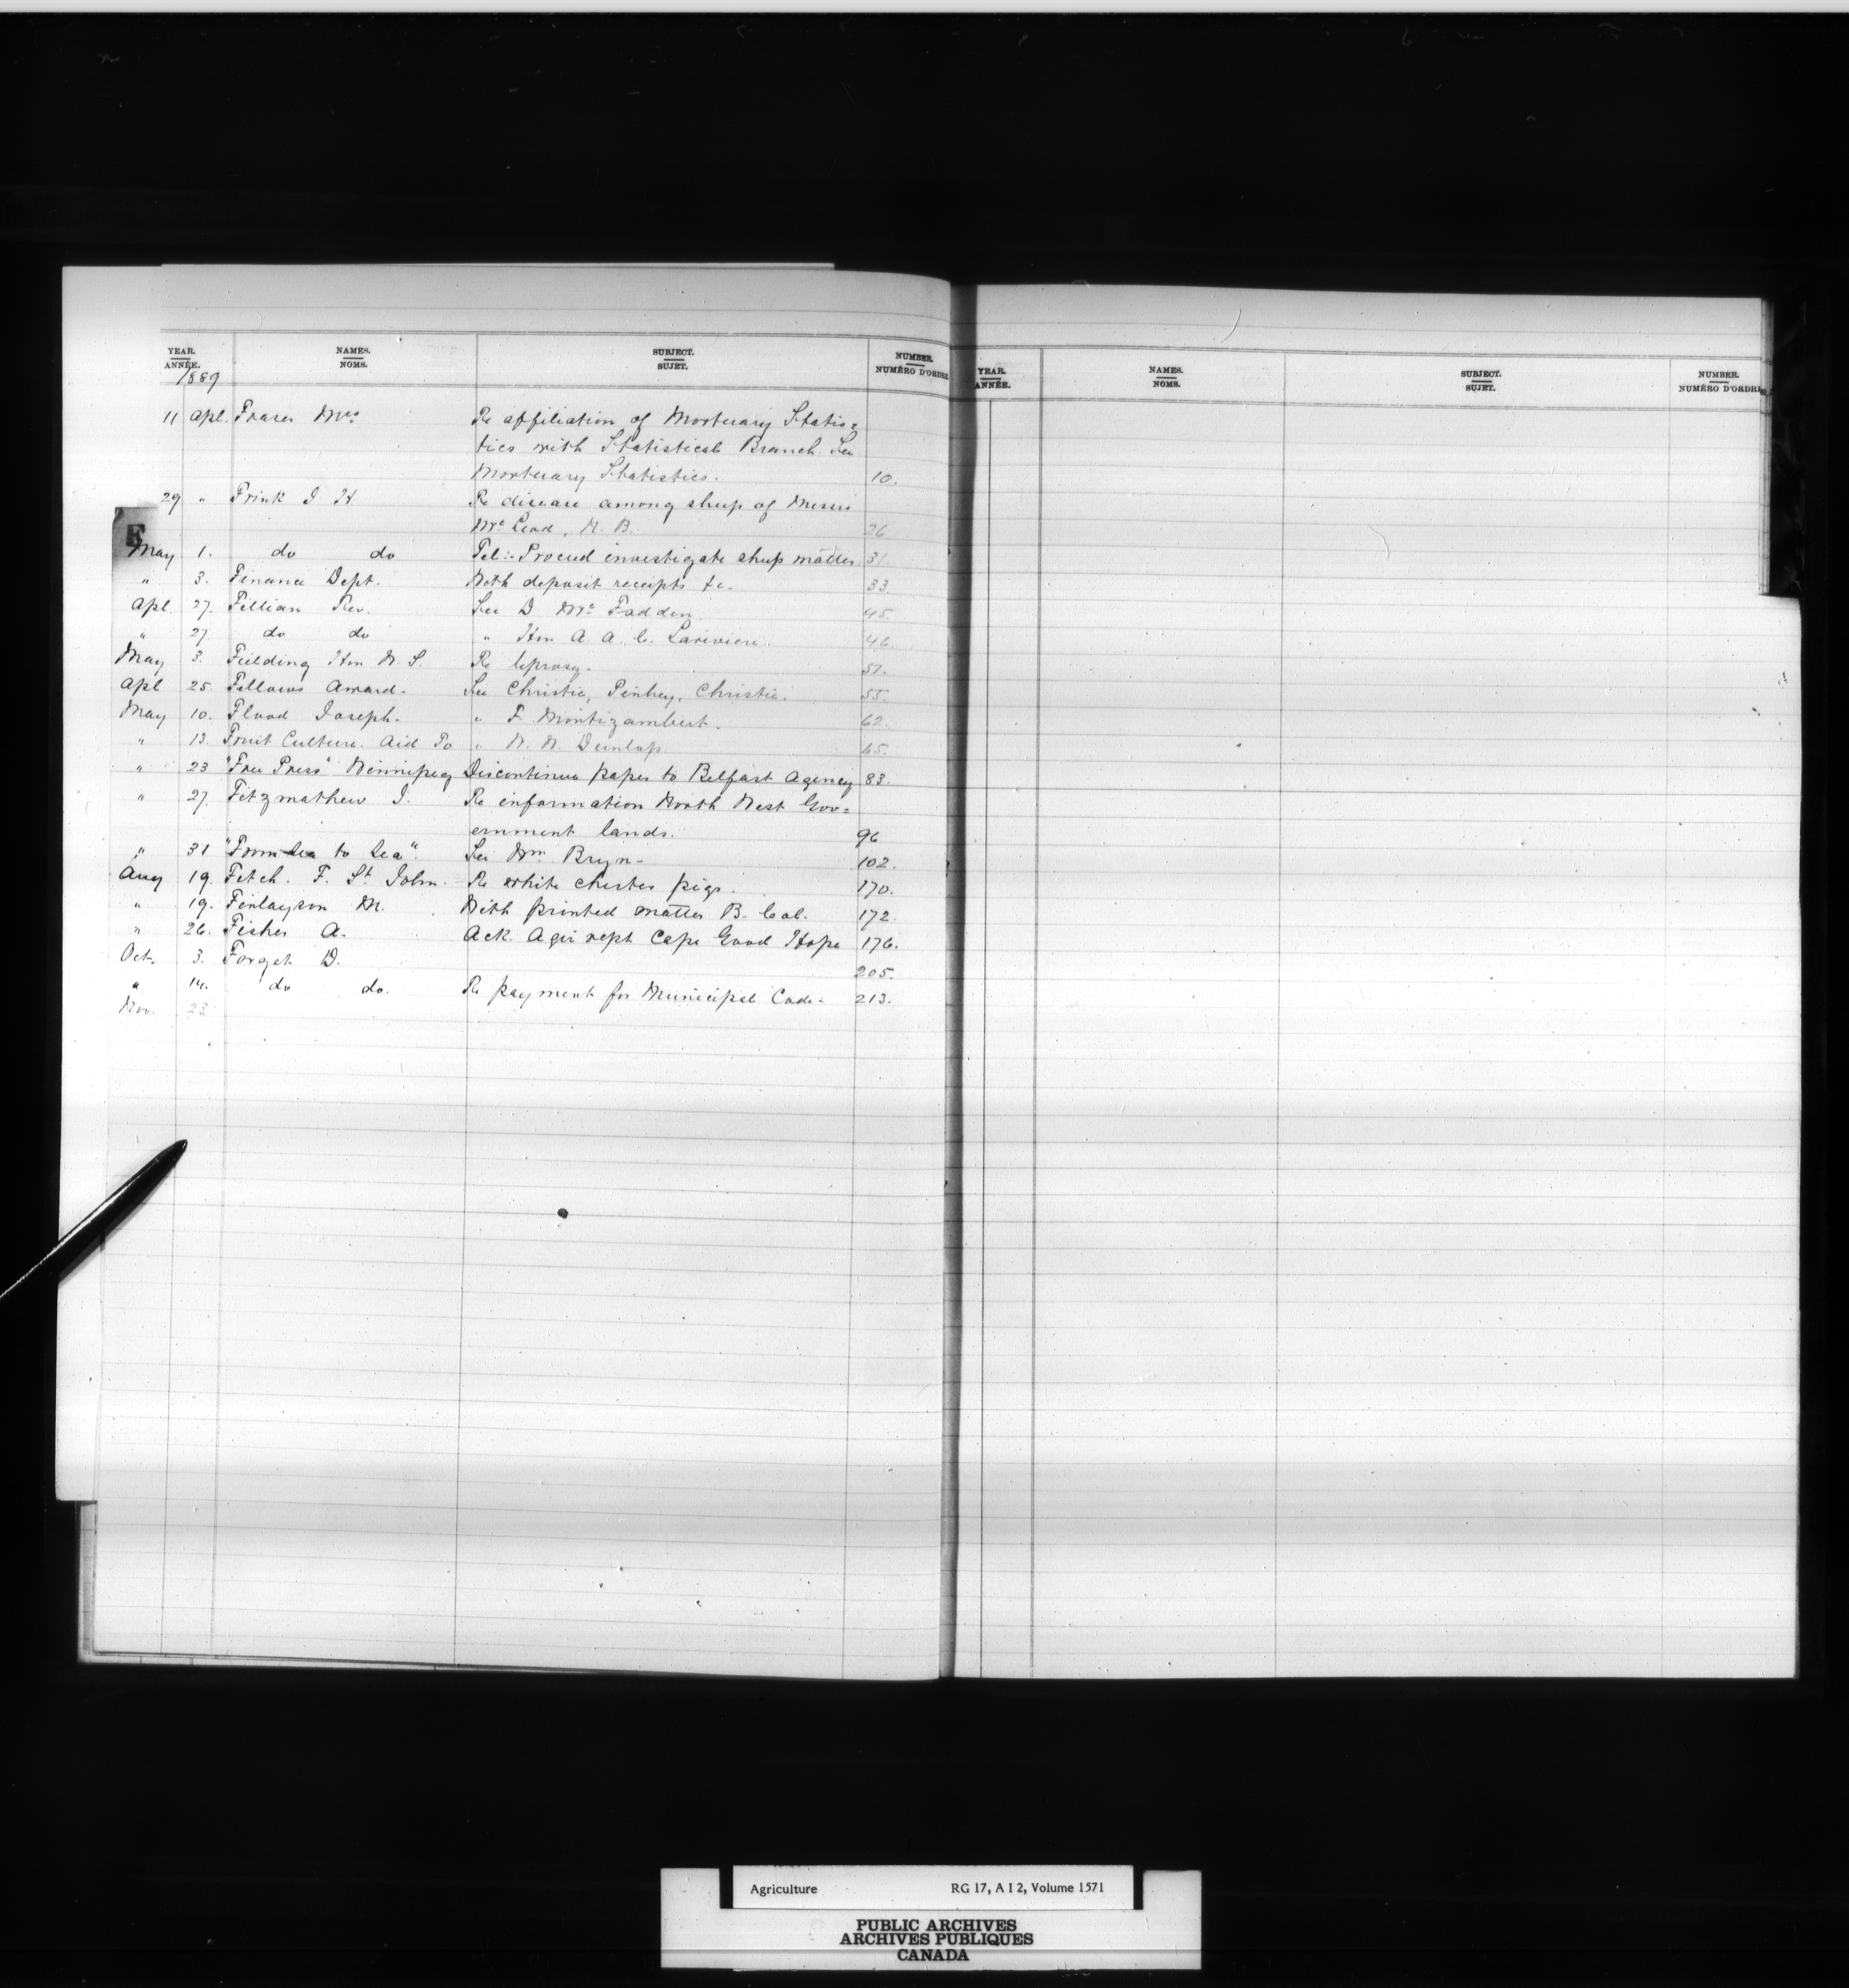 YEAR. NAMES. SUBJECT. NUMBER.
ANNÉE. NOMS. SUJET. NUMÉRO D'ORDRE
1889
11 Apl. Fraser Mrs Re affiliation of Mortuary Statis=
tics with Statistical Branch See
Mortuary Statistics. 10.
29 " Frink J H Re disease among sheep of Messrs
Mc Leod, N. B. 26
F
May 1. do do Tel:- Proceed investigate sheep matter. 31
" 3. Finance Dept. With deposit receipts &c. 33
Apl. 27. Fillian Rev. See D Mc Fadden 45.
" 27. do do " Hon A. A. C. Lariviere. 46.
May 3. Fielding Hon W. S. Re leprosy. 51.
Apl 25. Fellows Award. See Christie, Pinhey, Christie. 55.
May 10. Flood Joseph. " F. Montizambert. 62.
" 13. Fruit Culture. Aid To " W. N. Dunlop. 65.
" 23 "Free Press" Winnipeg Discontinue paper to Belfast Agency 83.
" 27. Fitzmathew J. Re information North West Gov=
ernment lands. 96
" 31 "From Sea to Sea". See Wm Bryn- 102.
Aug 19. Fitch. F. St John. Re white chester pigs. 170.
" 19. Finlayson M. With printed matter B. Col. 172.
" 26. Fisher A. Ack. Agri rept Cape Good Hope 176.
Oct. 3. Forget D. 205.
" 14. do do. Re payment for Municipal Code. 213.
Nov. 23
YEAR. NAMES. SUBJECT. NUMBER.
ANNÉE. NOMS. SUJET. NUMÉRO D'ORDRE
Agriculture RG 17, A I 2, Volume 1571
PUBLIC ARCHIVES
ARCHIVES PUBLIQUES
CANADA